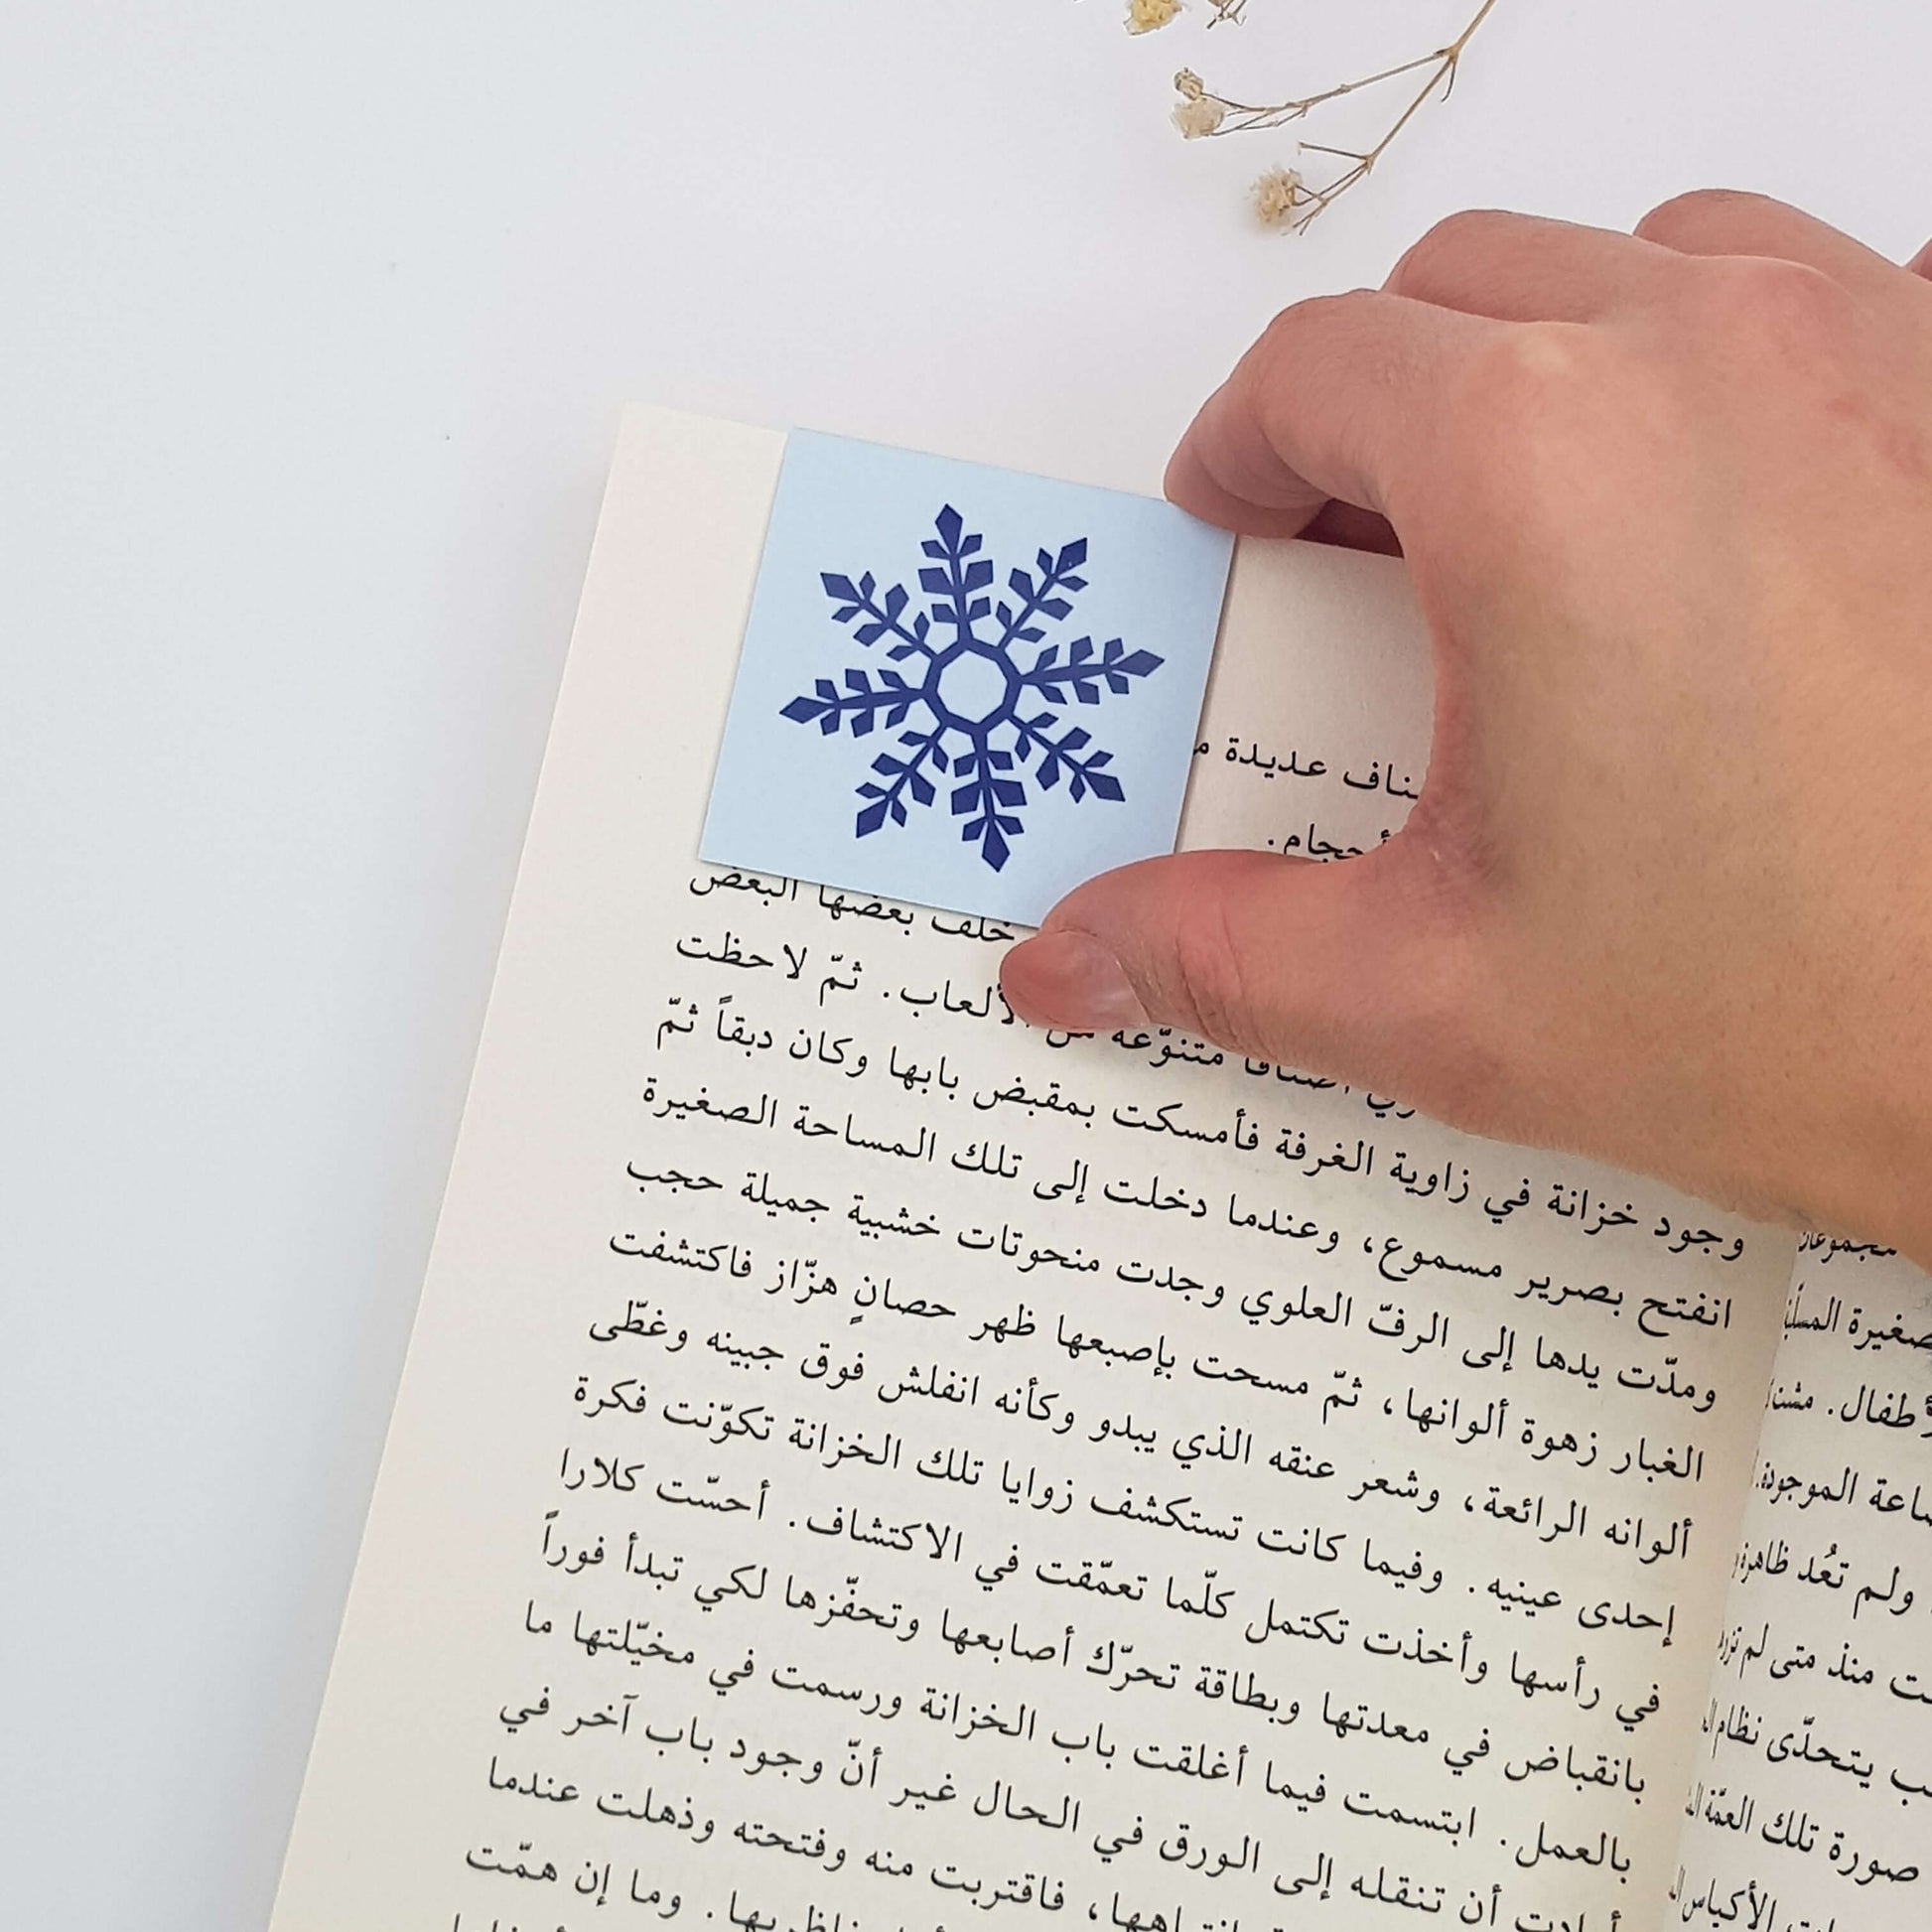 عديدة
أحجام.
خلف بعضها البعض
متنوّعة من الألعاب. ثمّ لاحظت
وجود خزانة في زاوية الغرفة فأمسكت بمقبض بابها وكان دبقاً ثمّ
انفتح بصرير مسموع، وعندما دخلت إلى تلك المساحة الصغيرة
ومدّت يدها إلى الرفّ العلوي وجدت منحوتات خشبية جميلة حجب
الغبار زهوة ألوانها، ثمّ مسحت بإصبعها ظهر حصانٍ هزّاز فاكتشفت
ألوانه الرائعة، وشعر عنقه الذي يبدو وكأنه انفلش فوق جبينه وغطّى
إحدى عينيه. وفيما كانت تستكشف زوايا تلك الخزانة تكوّنت فكرة
في رأسها وأخذت تكتمل كلّما تعمّقت في الاكتشاف. أحسّت كلارا
بانقباض في معدتها وبطاقة تحرّك أصابعها وتحفّزها لكي تبدأ فوراً
بالعمل. ابتسمت فيما أغلقت باب الخزانة ورسمت في مخيّلتها ما
أرادت أن تنقله إلى الورق في الحال غير أنّ وجود باب آخر في
فاقتربت منه وفتحته وذهلت عندما
وما إن همّت
الأطفال.
الموجودة
ولم تعُد ظاهرة
منذ متى لم
يتحدّى نظام
صورة تلك العمّة
الأكياس